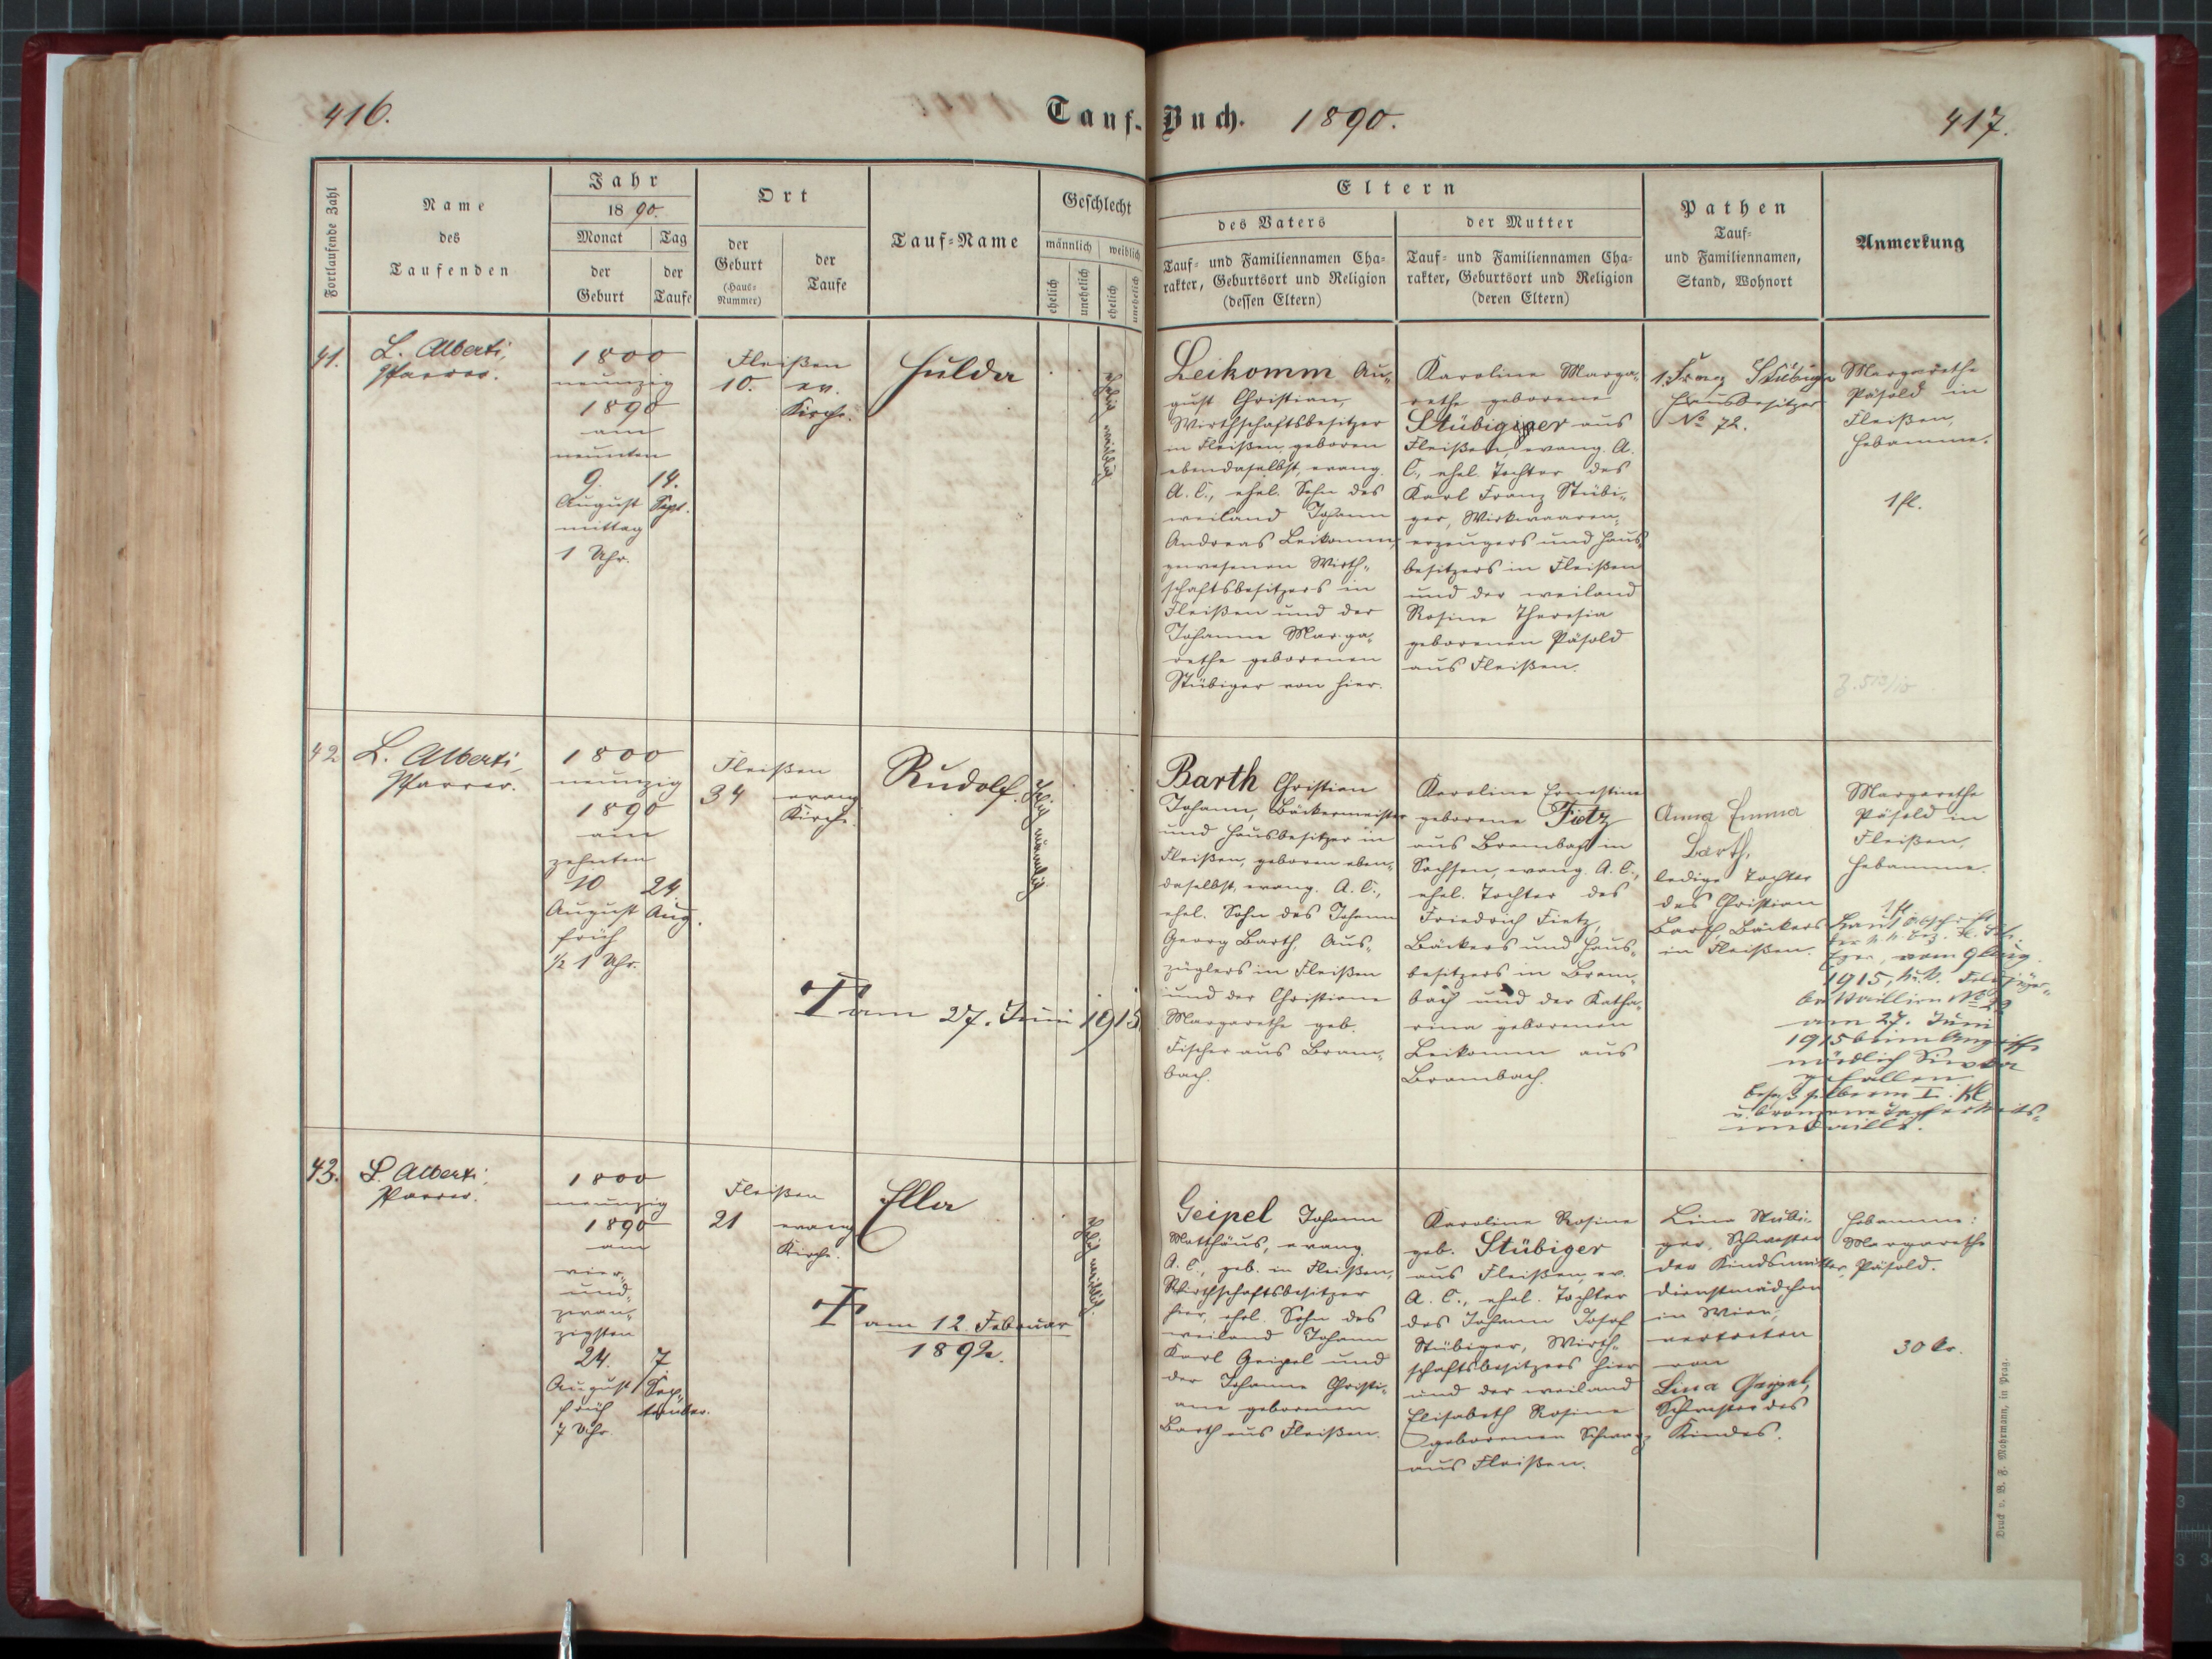 416.
Tauf-Buch. 1890.
417.
Fortlaufende Zahl
Name
des
Taufenden
Jahr
1890.
Monat
Tag
der
Geburt
der
Taufe
Ort
der
Geburt
(Haus-
Nummer)
der
Taufe
Tauf-Name
Geschlecht
männlich
weiblich
ehelich
unehelich
ehelich
unehelich
Eltern
des Vaters
Tauf- und Familiennamen Cha-
rakter, Geburtsort und Religion
(dessen Eltern)
der Mutter
Tauf- und Familiennamen Cha-
rakter, Geburtsort und Religion
(deren Eltern)
Pathen
Tauf-
und Familiennamen,
Stand, Wohnort
Anmerkung
41.
L. Alberti,
Pfarrer.
1800
neunzig
1890
am
neunten
9.
August
mittag
1 Uhr.
14.
Sept.
Fleißen
10.
ev.
Kirche.
Hulda
ehelich weiblich
Leikomm Au-
gust Christian,
Wirthschaftsbesitzer
in Fleißen, geboren
ebendaselbst, evang.
A. C., ehel. Sohn des
weiland Johann
Andreas Leikomm,
gewesenen Wirth-
schaftsbesitzers in
Fleißen und der
Johanne Marga-
rethe geborenen
Stübiger von hier.
Karoline Marga-
rethe geborene
Stübiger aus
Fleißen, evang. A.
C., ehel. Tochter des
Karl Franz Stübi-
ger, Wirkwaaren-
erzeugers und Haus-
besitzers in Fleißen
und der weiland
Rosine Theresia
geborenen Päsold
aus Fleißen.
1. Franz Stübiger
Hausbesitzer
No 72.
Margarethe
Päsold in
Fleißen,
Hebamme.
1 fl.
42
L. Alberti,
Pfarrer.
1800
neunzig
1890
am
zehnten
10
August
früh
½ 1 Uhr.
24.
Aug.
Fleißen
34
evang
Kirche.
Rudolf.
ehelich männlich
† am 27. Juni 1915
Barth Christian
Johann, Bäckermeister
und Hausbesitzer in
Fleißen, geboren eben-
daselbst, evang. A. C.,
ehel. Sohn des Johann
Georg Barth, Aus-
züglers in Fleißen
und der Christiane
Margarethe geb.
Fischer aus Bram-
bach.
Karoline Ernestine
geborene Fietz
aus Brambach in
Sachsen, evang. A. C.,
ehel. Tochter des
Friedrich Fietz,
Bäckers und Haus-
besitzers in Bram-
bach und der Katha-
rina geborenen
Leikomm aus
Brambach.
Anna Emma
Barth,
ledige Tochter
des Christian
Barth, Bäckers
in Fleißen.
Margarethe
Päsold in
Fleißen,
Hebamme.
1 fl.
Laut
Eger, vom 9
1915, k. k. Feldjäger-
bataillon No 22
am 27. Juni
1915 beim Angriff
nördlich
gefallen
besaß silberne I. Kl
u. bronzene Tapferkeits-
medaille.
43.
L. Alberti,
Pfarrer.
1800
neunzig
1890
am
vier-
und-
zwan-
zigsten
24.
August
früh
7 Uhr
7.
Sep-
tember.
Fleißen
21
evang
Kirche.
Ella
ehelich weiblich.
† am 12. Februar
1892.
Geipel Johann
Matthäus, evang.
A. C., geb. in Fleißen,
Wirthschaftsbesitzer
hier, ehel. Sohn des
weiland Johann
Karl Geipel und
der Johanne Christi-
ane geborenen
Barth aus Fleißen.
Karoline Rosine
geb. Stübiger
aus Fleißen, ev.
A. C., ehel. Tochter
des Johann Josef
Stübiger, Wirth-
schaftsbesitzers hier
und der weiland
Elisabeth Rosine
geborenen Schwarz
aus Fleißen.
Lina Stübi-
ger, Schwester
der Kindsmutter,
Dienstmädchen
in Wien,
vertreten
von
Lina Geipel,
Schwester des
Kindes.
Hebamme:
Margarethe
Päsold.
30 kr.
Druck v. B. F. Mohrmann, in Prag.